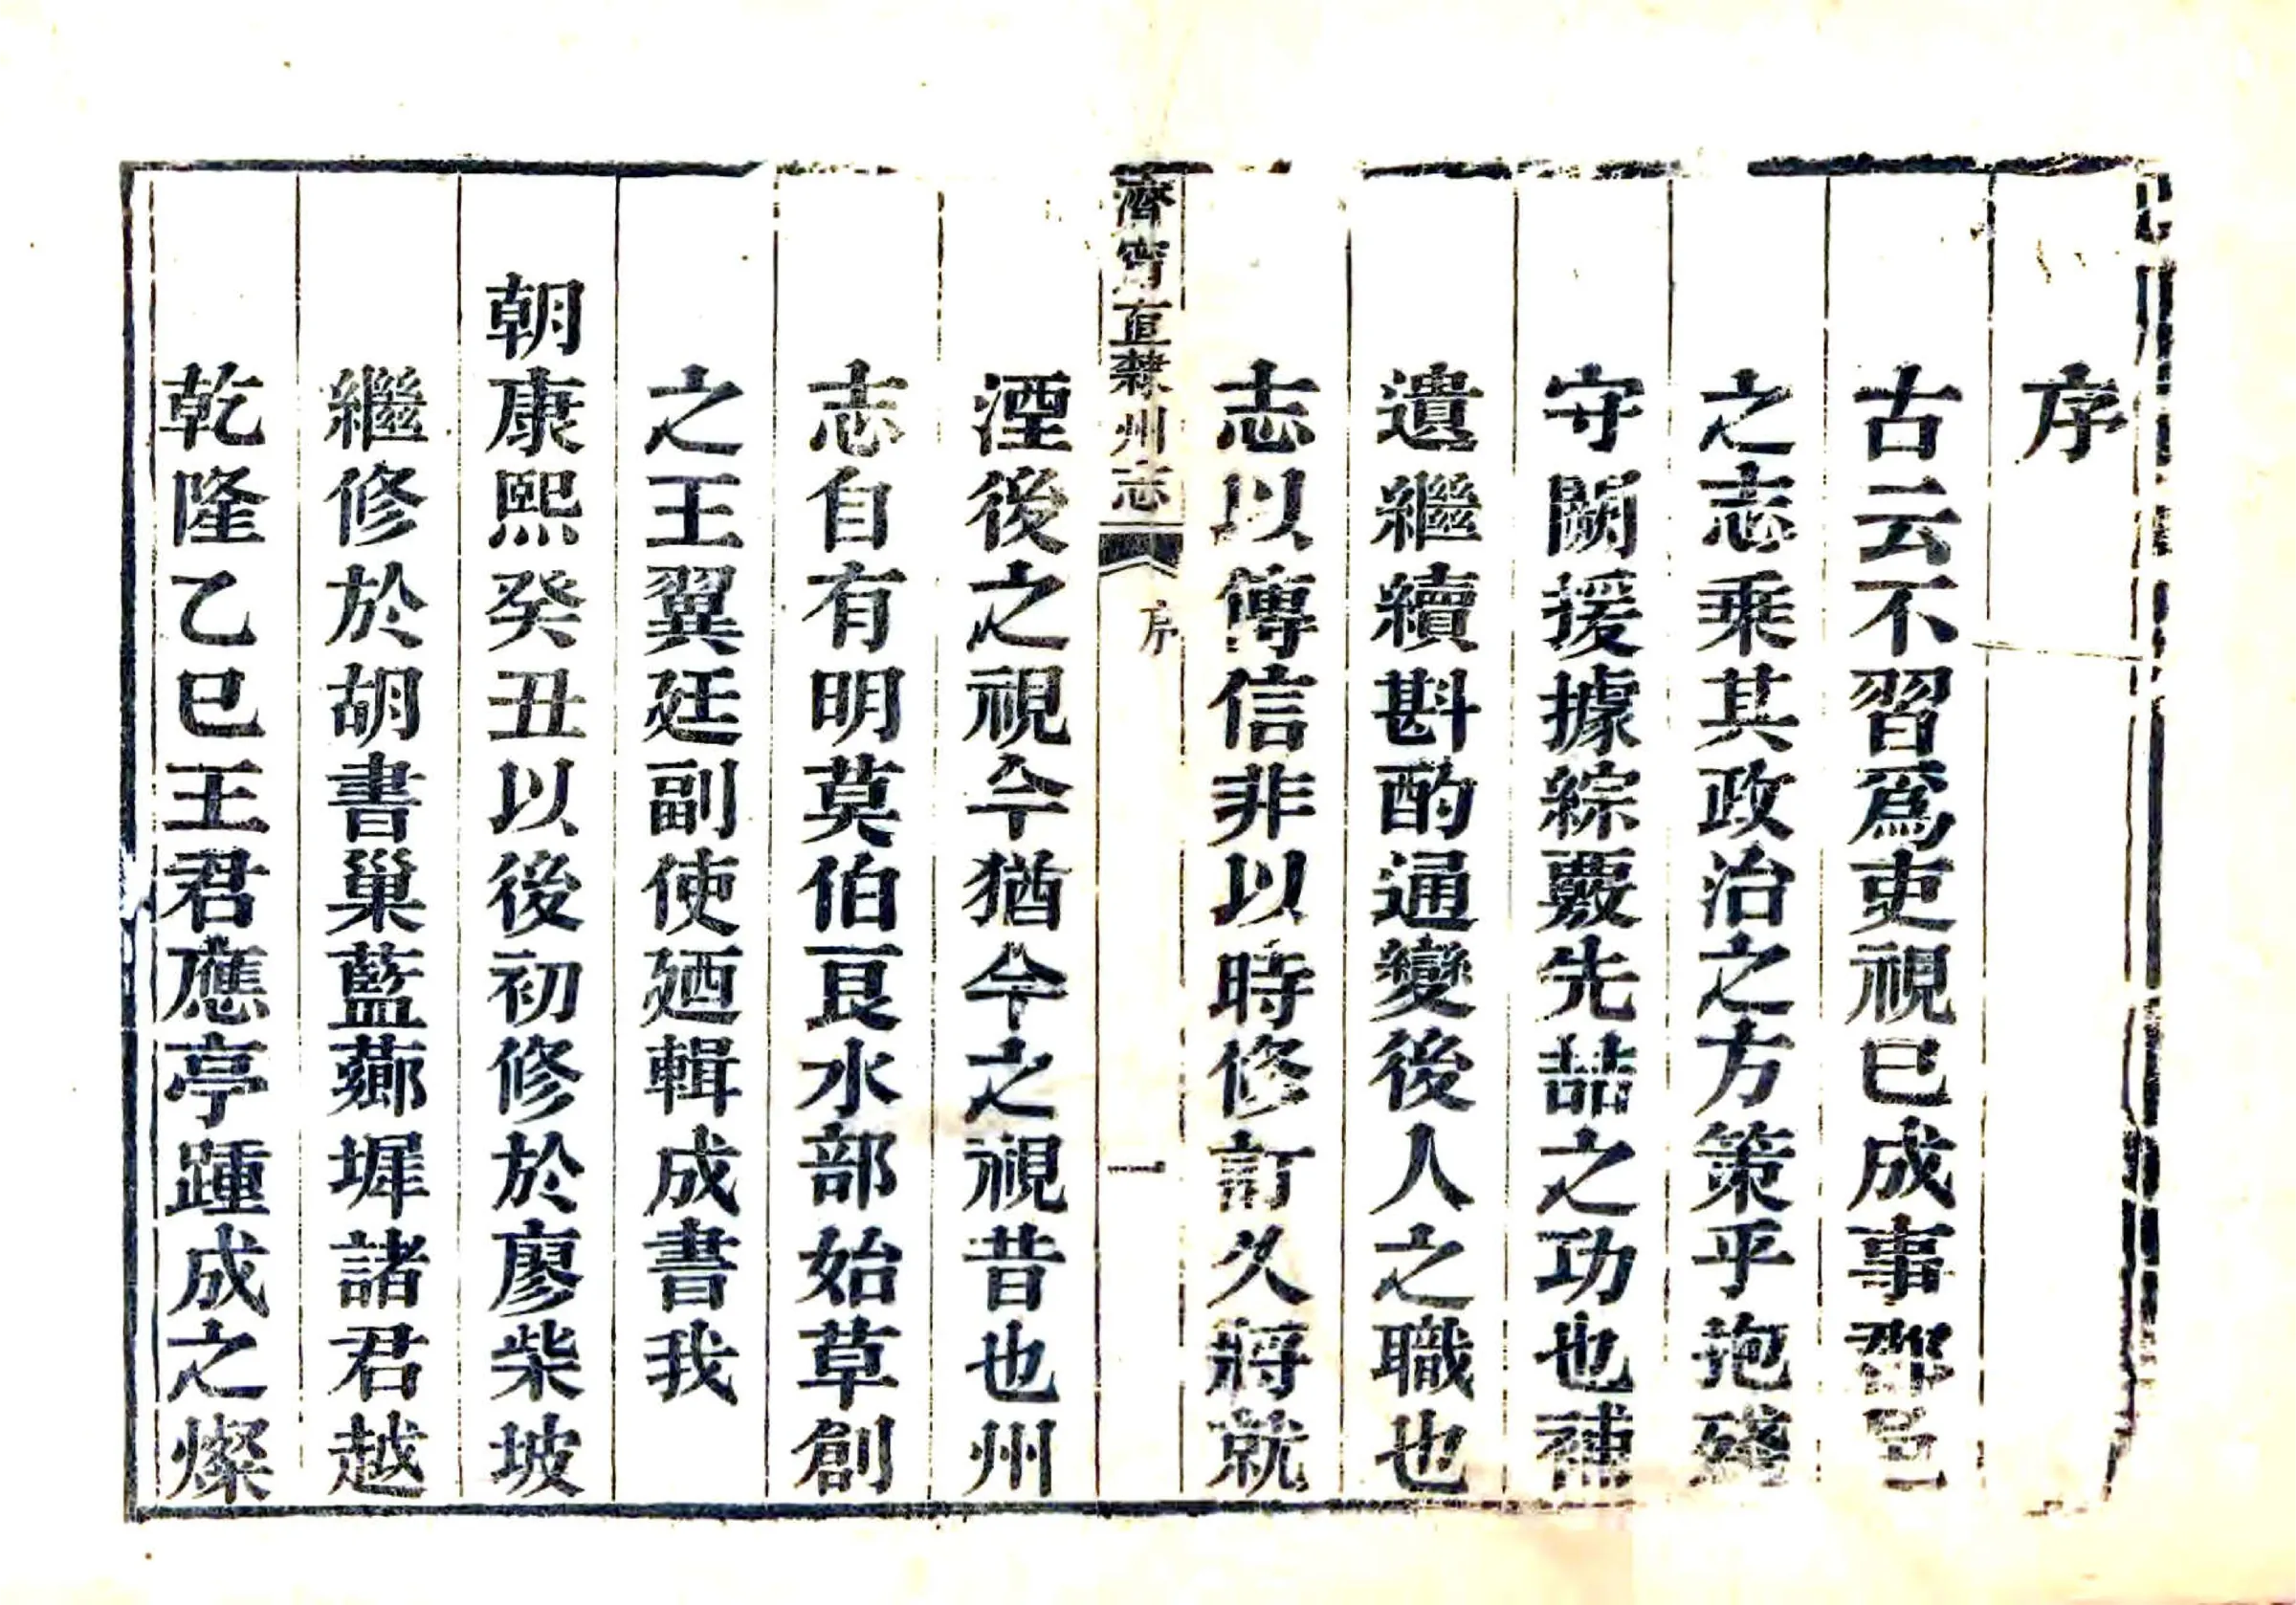 序
古云不習爲吏視巳成事郡邑
之志乘其政治之方策乎抱殘
守闕援據綜覈先喆之功也補
遺繼續斟酌通變後人之職也
志以傳信非以時修訂久將就
濟寧直隸州志
序
一
湮後之視今猶今之視昔也州
志自有明莫伯良水部始草創
之王翼廷副使廼輯成書我
朝康熙癸丑以後初修於廖柴坡
繼修於胡書巢藍薌墀諸君越
乾隆乙巳王君應亭踵成之燦